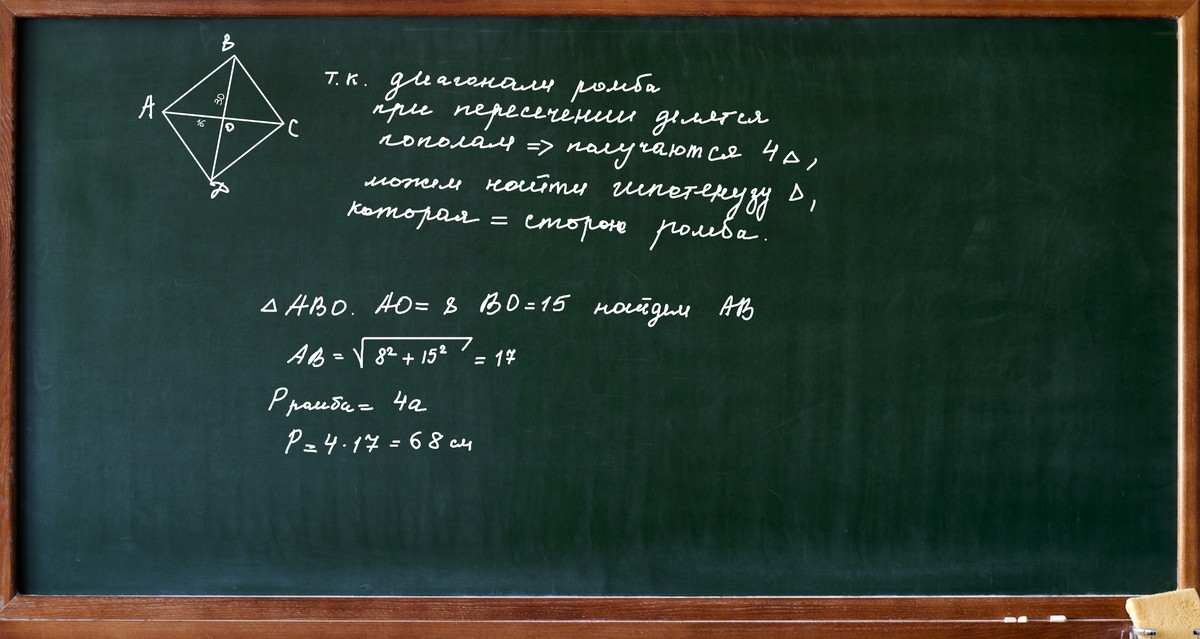 B
A
30
16
O
C
D
т.к. диагонали ромба
при пересечении делятся
пополам => получаются 4 △,
можем найти гипотенузу △,
которая = стороне ромба.
△ ABO. AO = 8 BO = 15 найдем AB
AB = √8² + 15² = 17
Pромба = 4a
P = 4 · 17 = 68 см